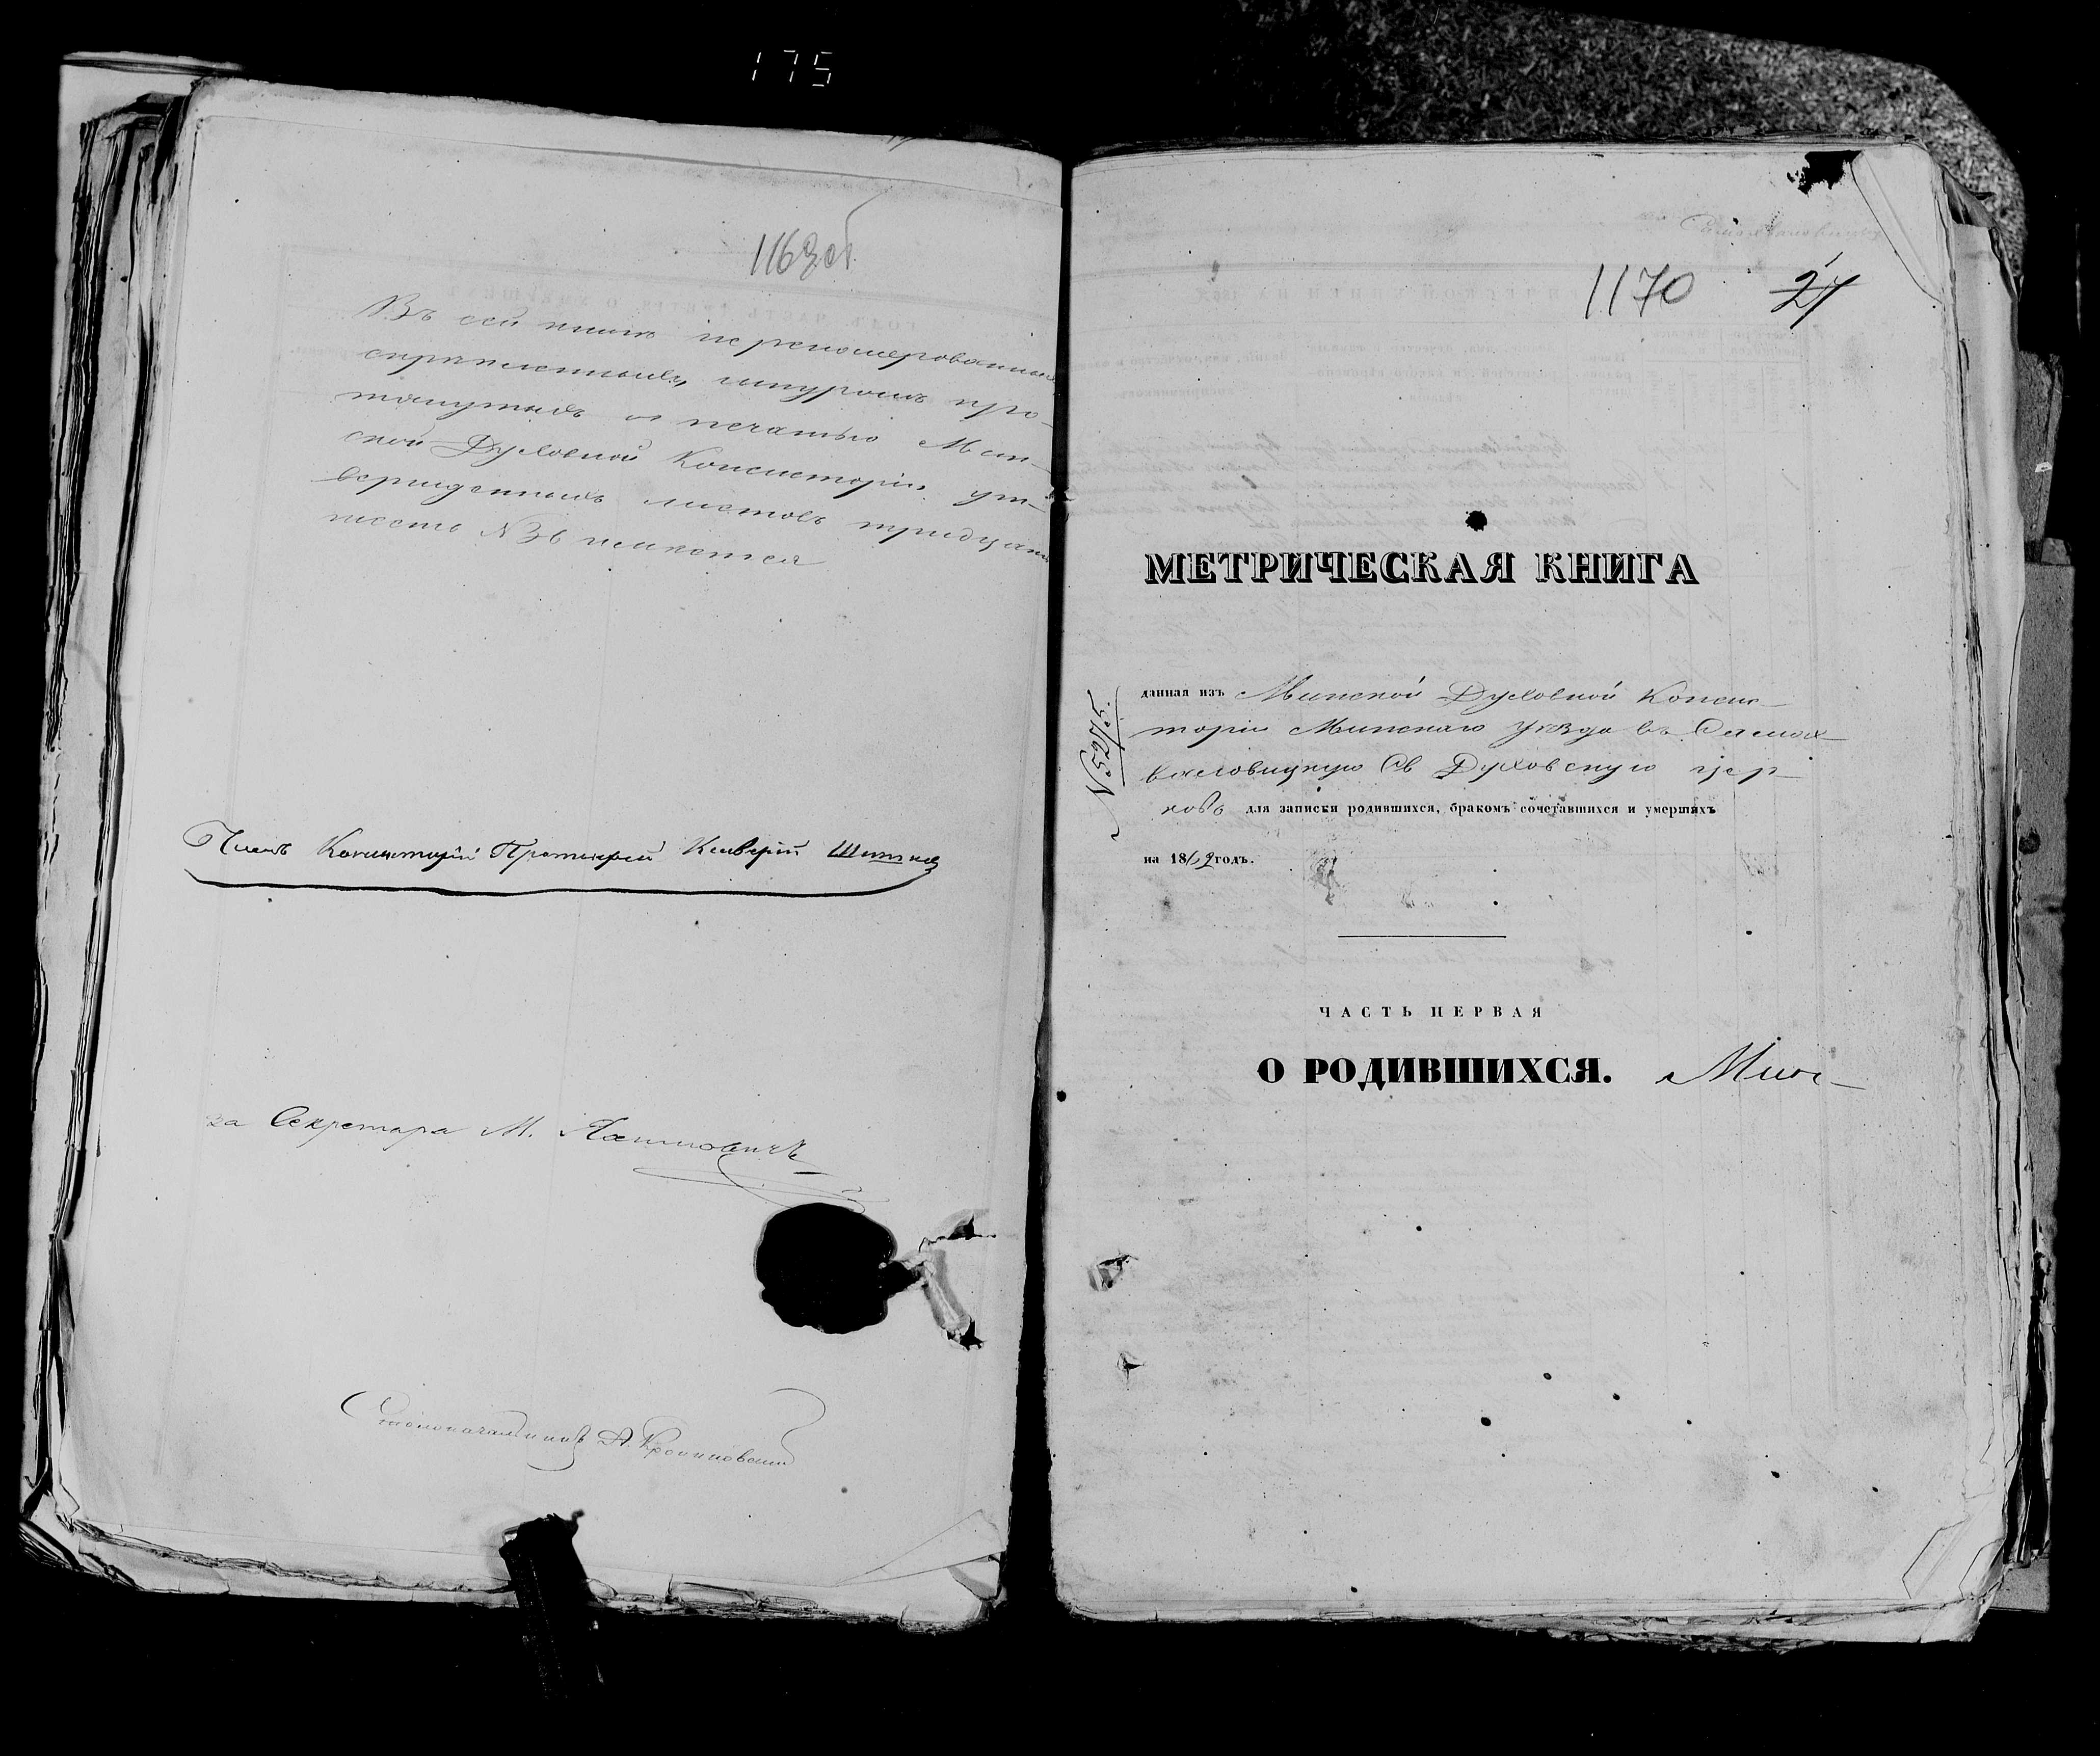 175
1169об
Въ сей книгѣ перенумерованныхъ
скрѣпленныхъ, шнуромъ про-
тянутыхъ и печатью Мин-
ской Духовной Консисторіи ут-
вержденныхъ листовъ тридцать
шесть №36 имѣется
Членъ Консисторіи Протоіерей
за Секретара М.
Столоначальникъ А.
1170
МЕТРИЧЕСКАЯ КНИГА
данная изъ Минской Духовной Консис-
торіи Минскаго Уѣзда въ
Св Духовскую цер-
ковь для записки родившихся, бракомъ сочетавшихся и умершихъ
на 18 годъ.
ЧАСТЬ ПЕРВАЯ
О РОДИВШИХСЯ.